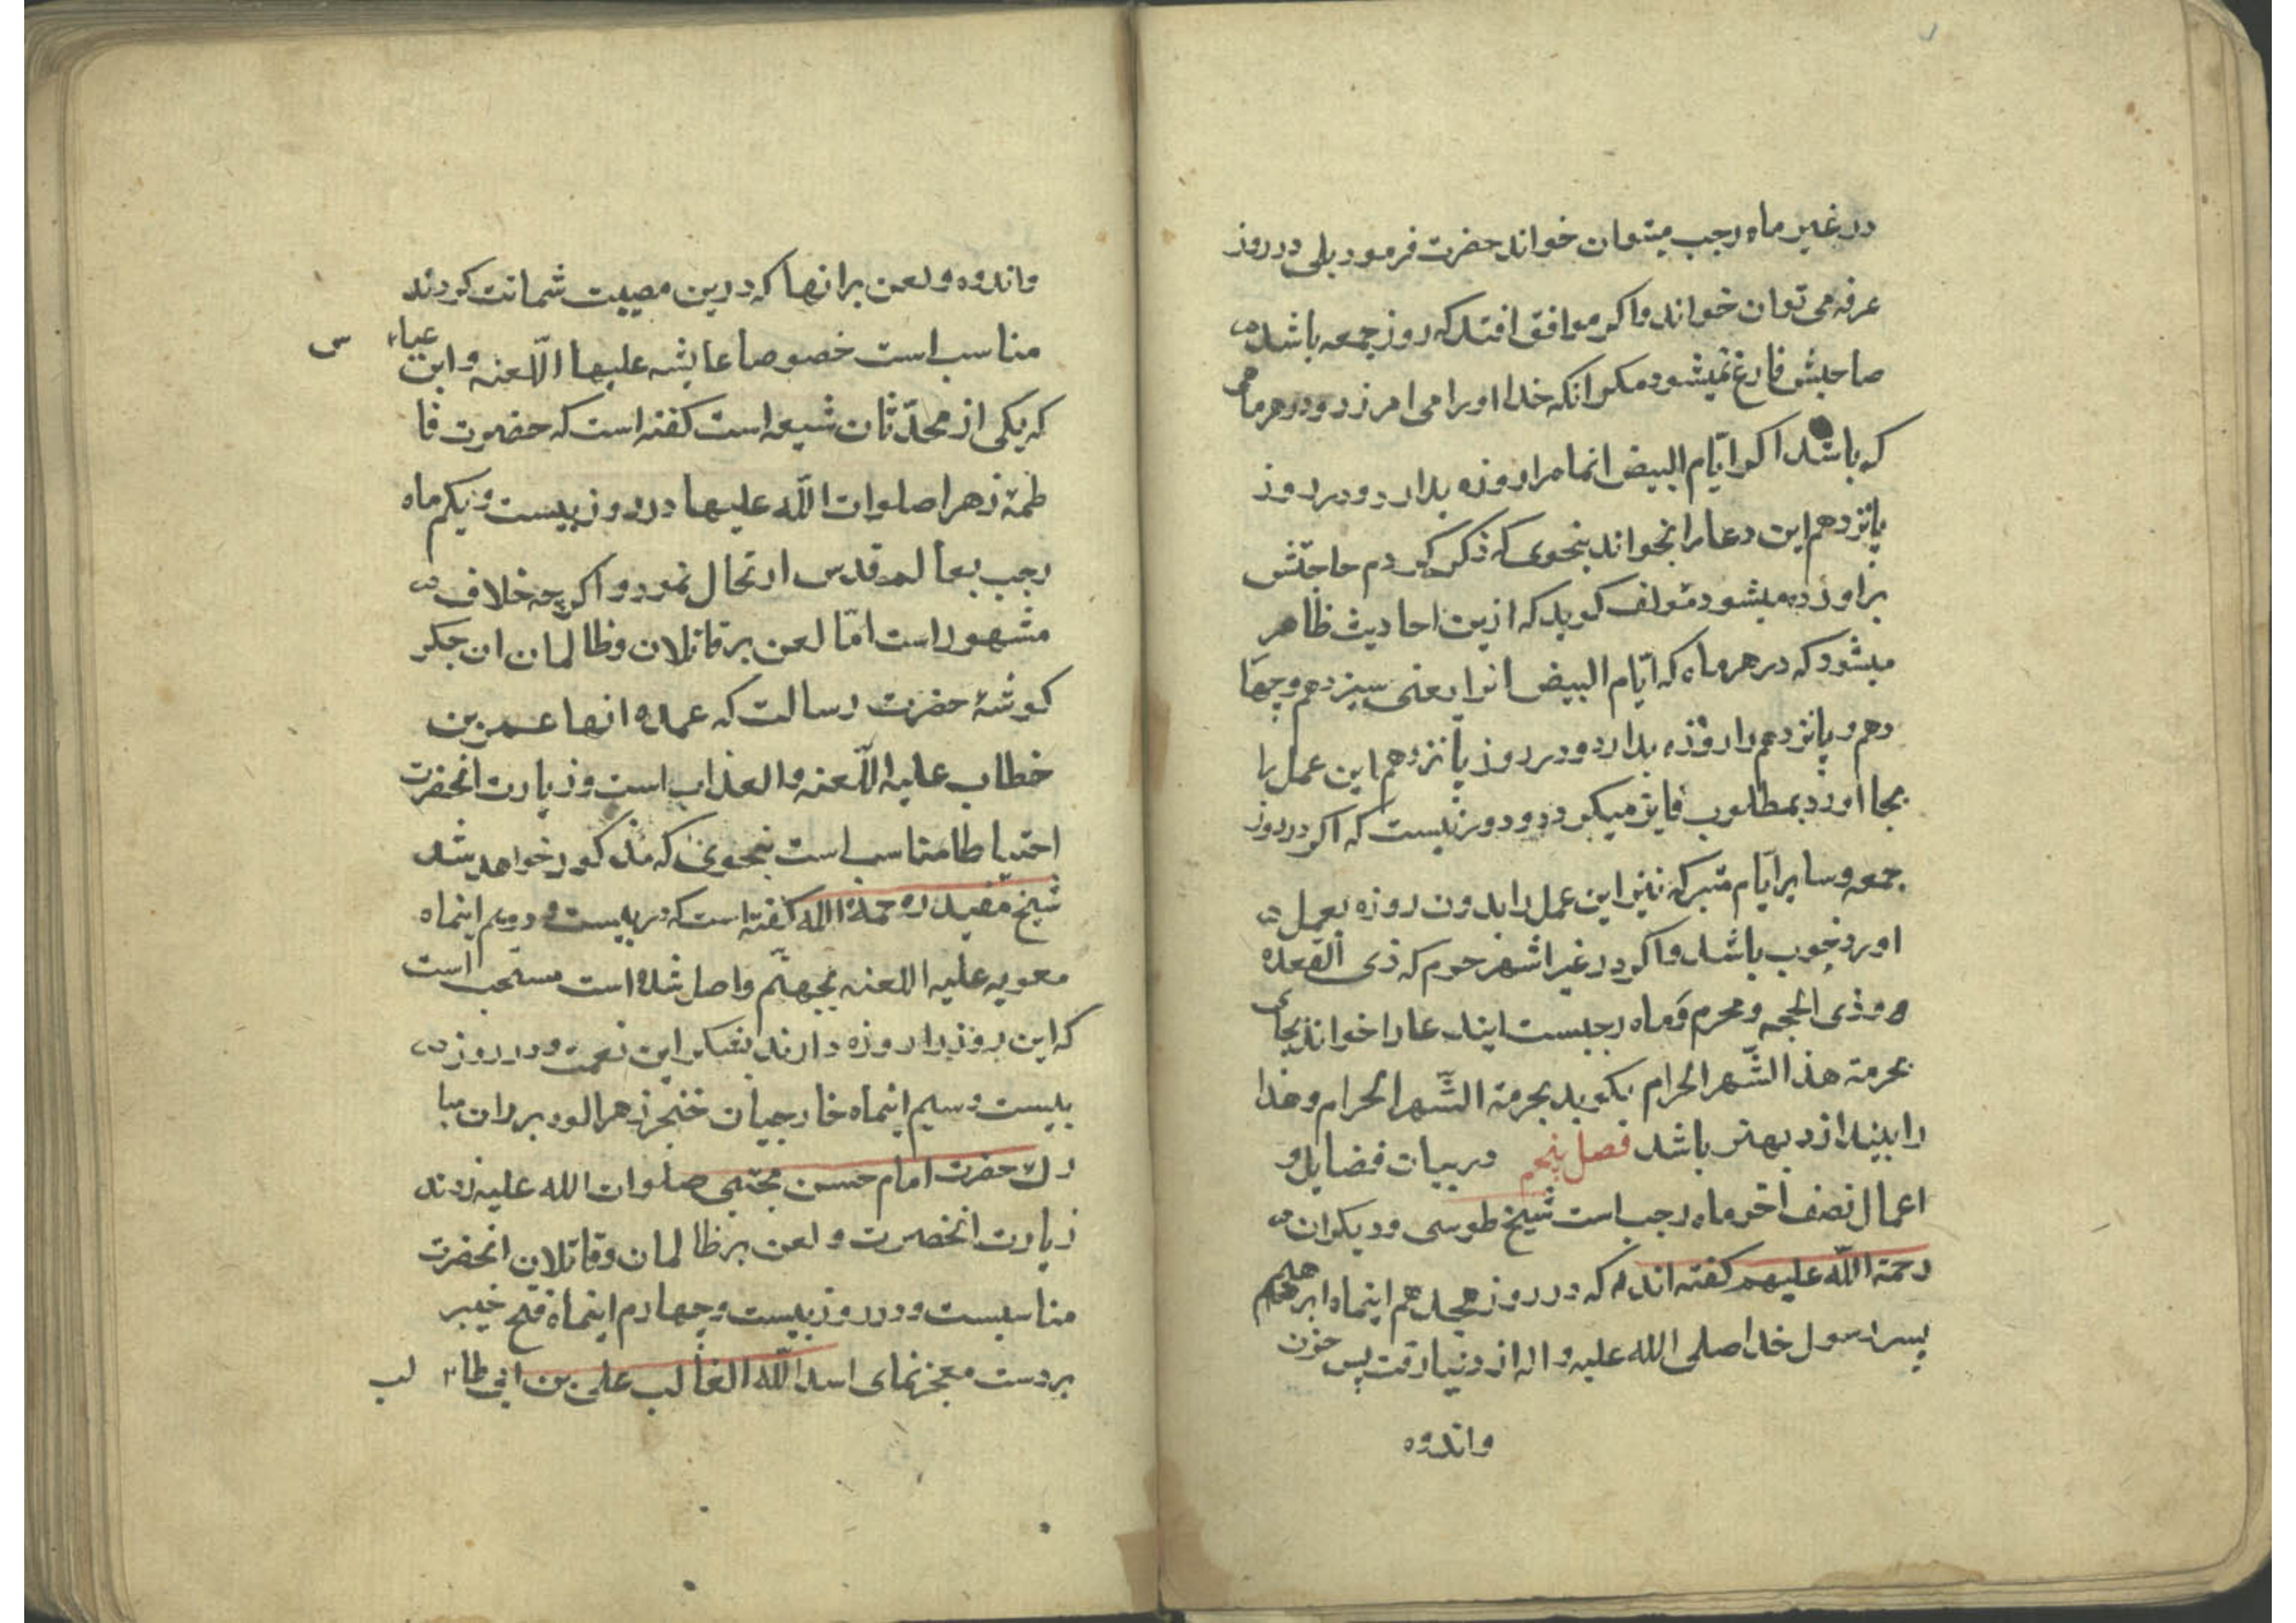 در غیر ماه رجب میتوان خواند حضرت فرمود بلی در روز
عرفه می توان خواند واکر موافق افتد که روز جمعه باشد
صاحبش فارغ نمیشود مکر انکه خدا اورا می امرزد ودر هر ماهی
که باشد اکر ایّام البیض انماه را روزه بدارد ودر روز
پانزدهم این دعا را بخواند بنحوی که ذکر کردم حاجتش
براورده میشود مؤلف کوید که ازین احادیث ظاهر
میشود که در هر ماه که ایّام البیض انرا یعنی سیزدهم وچها
دهم وپانزدهم را روزه بدارد ودر روز پانزدهم این عمل را
بجا اورد بمطلوب فایز میکردد ودور نیست که اکر در روز
جمعه وسایر ایّام متبرکه نیز این عمل را بدون روزه بعمل
اورد خوب باشد واکر در غیر اشهر حرم که ذی القعده
وذی الحجه ومحرم وماه رجبست ایندعا را خواند بجای
بحرمة هذا الشّهر الحرام بکوید بحرمة الشّهر الحرام وهذا
را بیندازد بهتر باشد فصل پنجم در بیان فضایل و
اعمال نصف اخر ماه رجب است شیخ طوسی ودیکران
رحمة اللّه علیهم کفته اند که در روز هجدهم اینماه ابرهیم
پسر رسول خدا صلی الله علیه واله از دنیا رفت پس حزن
واندوه
واندوه ولعن بر انها که درین مصیبت شماتت کردند
مناسب است خصوصا عایشه علیها اللّعنه وابن عیاس
که یکی از محدّثان شیعه است کفته است که حضرت فا
طمهٔ زهرا صلوات اللّه علیها در روز بیست ویکم ماه
رجب بعالم قدس ارتحال نمود واکرچه خلاف
مشهور است امّا لعن بر قاتلان وظالمان ان جکر
کوشهٔ حضرت رسالت که عمده انها عمر بن
خطاب علیه اللّعنه والعذاب است وزیارت انحضرت
احتیاطا مناسب است بنحوی که مذکور خواهد شد
شیخ مفید رحمة اللّه کفته است که در بیست ودویم اینماه
معویه علیه اللعنه بجهنّم واصل شده است مستحب است
که این روز را روزه دارند بشکر این نعمت ودر روز
بیست وسیم اینماه خارجیان خنجر زهرالود بر ران مبا
رك حضرت امام حسن مجتبی صلوات الله علیه زدند
زیارت انحضرت ولعن بر ظالمان وقاتلان انحضرت
مناسبست ودر روز بیست وچهارم اینماه فتح خیبر
بر دست معجز نمای اسد اللّه الغالب علی بن ابی طالب